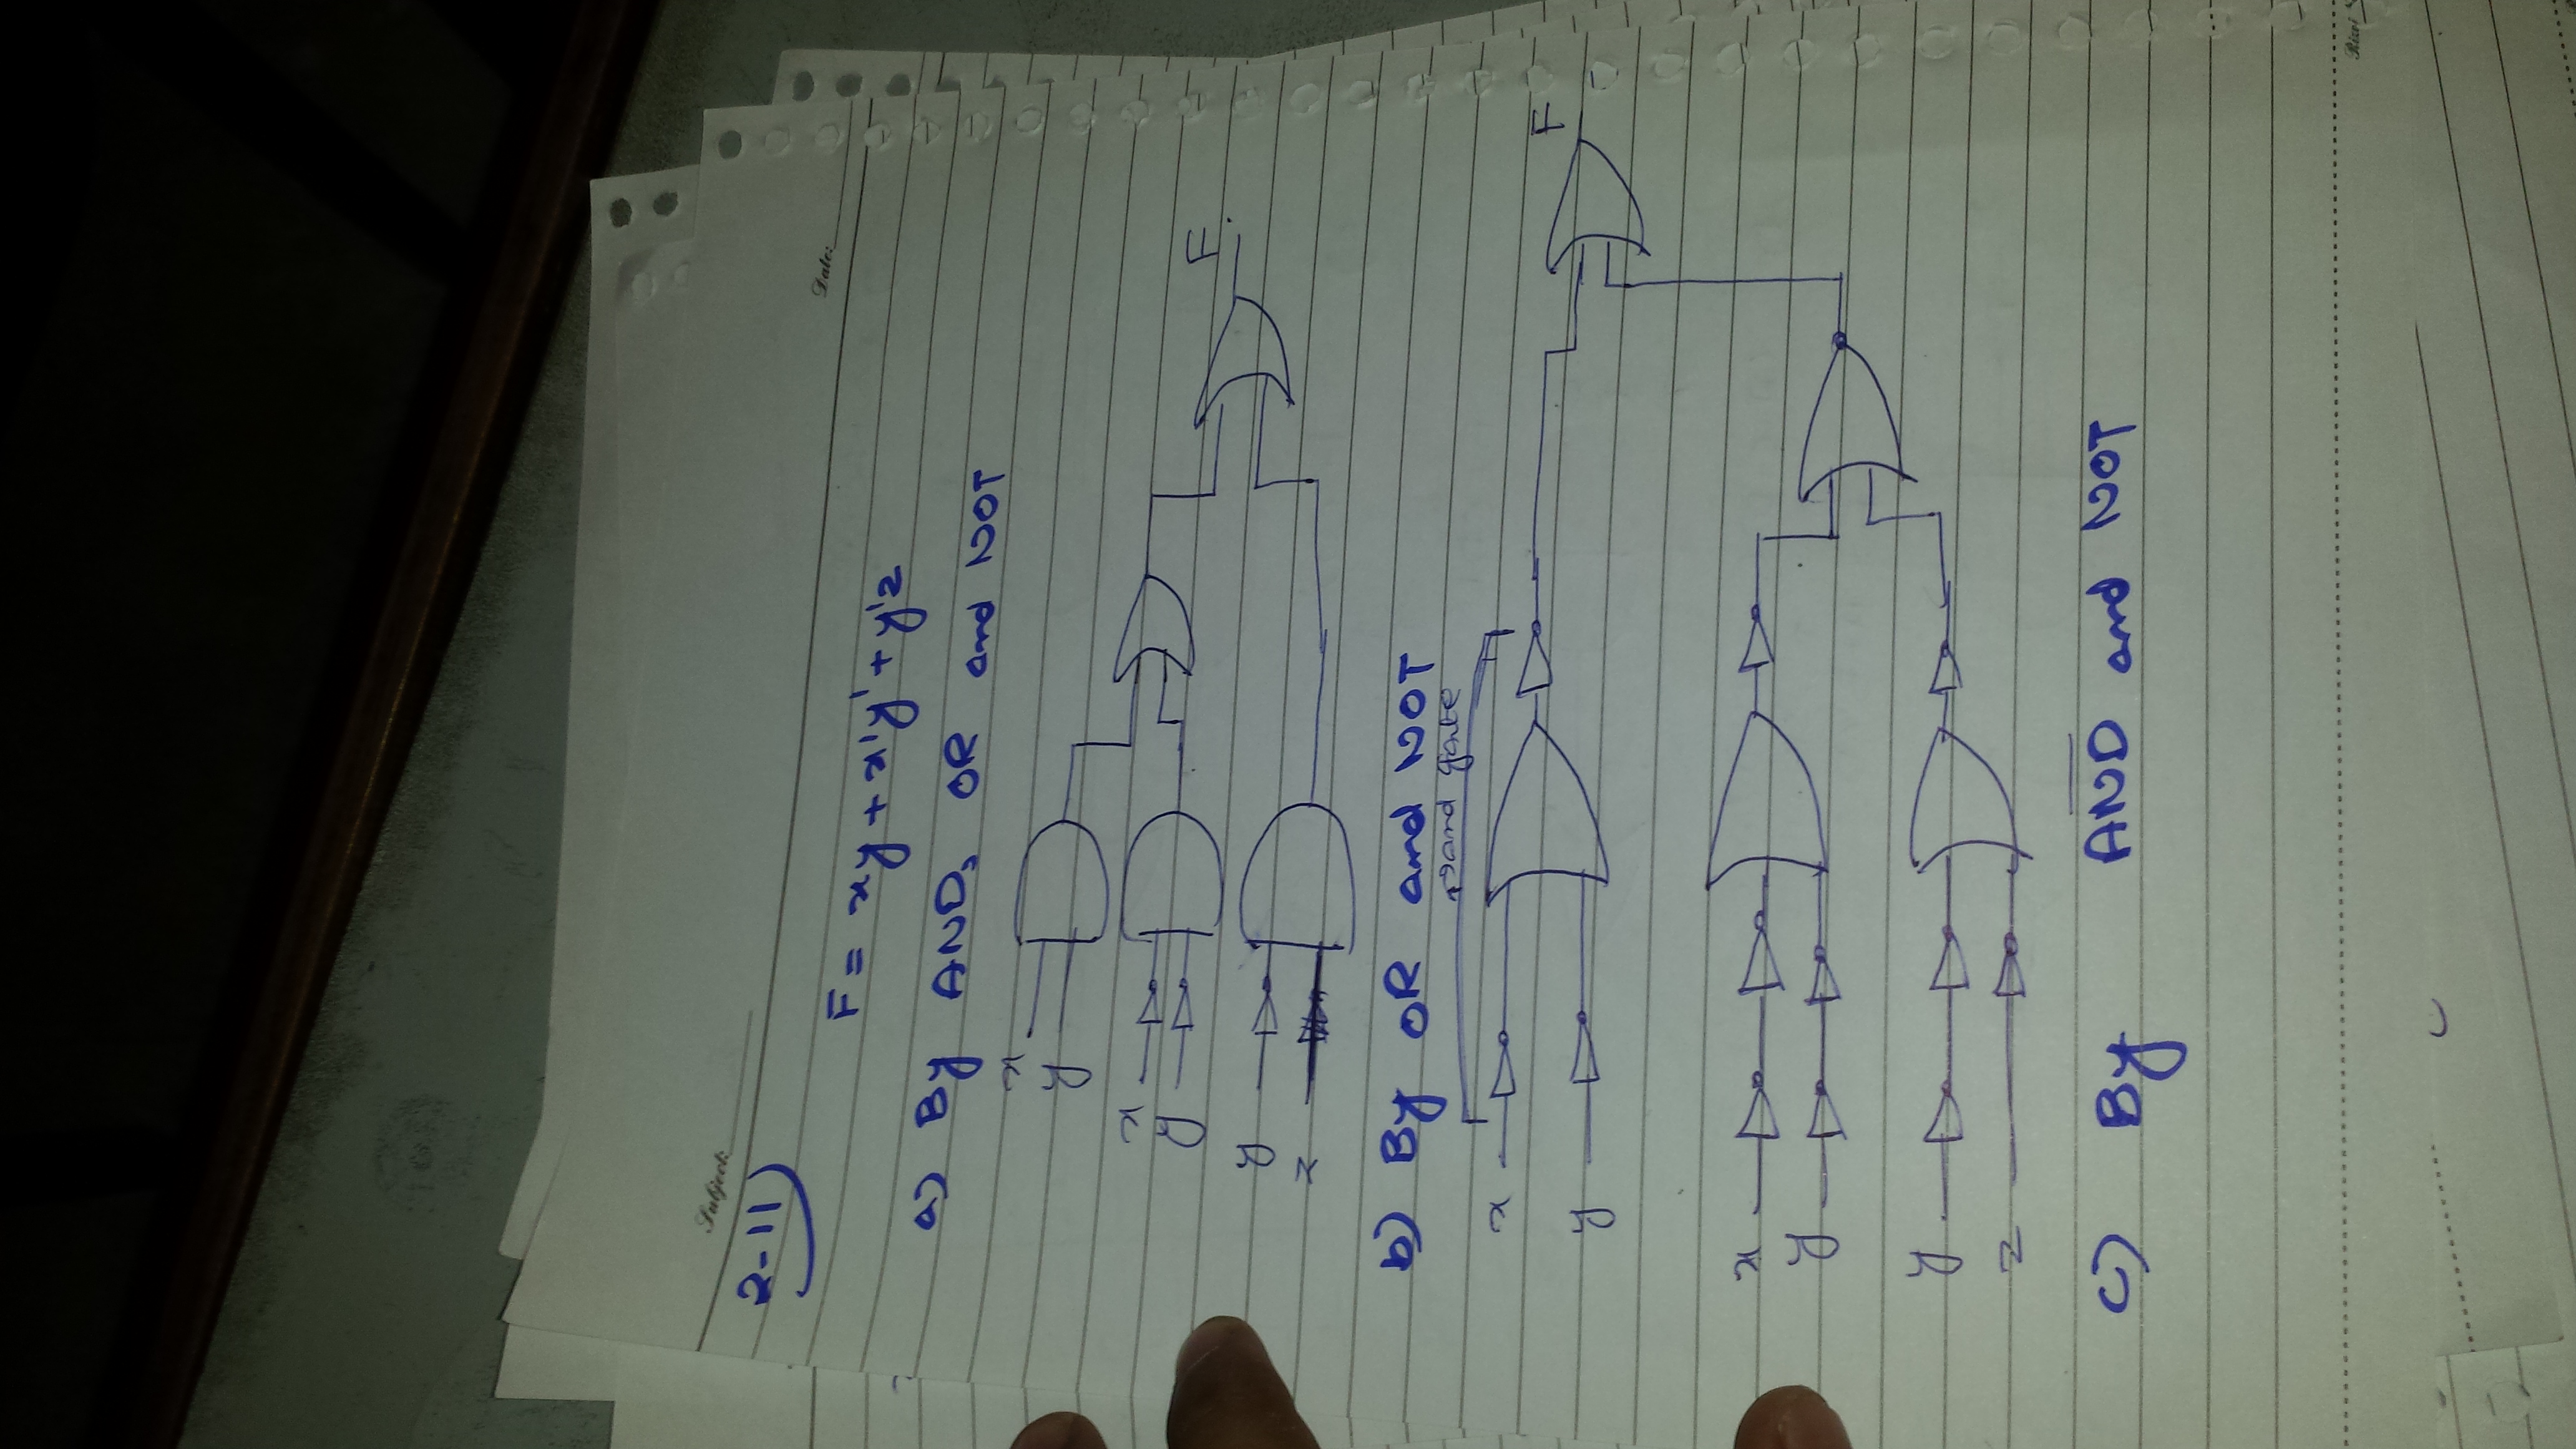 Subject:
Date:
2-11)
F = xy + x'y' + y'z
a) By AND, OR and NOT
x
y
x
y
y
z
F
b) By OR and NOT
nand gate
x
y
F
x
y
y
z
c) By AND and NOT